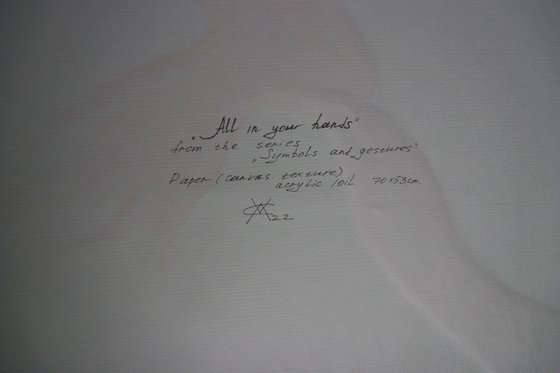 „All in your hands"
from the series
„Symbols and gestures"
Paper (canvas texture)
acrylic /oil 70x53cm.
22